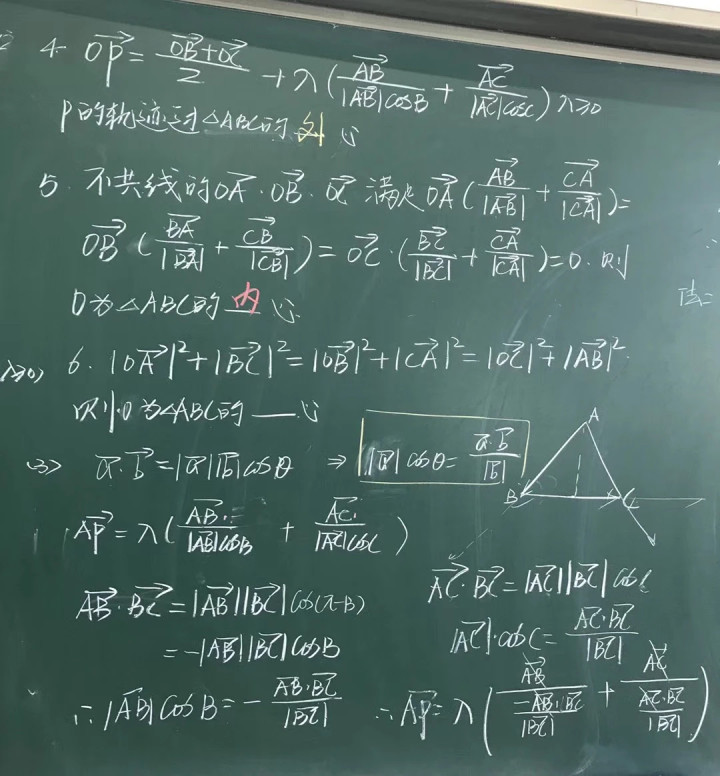 4. $\overrightarrow{OP}=\frac{\overrightarrow{OB}+\overrightarrow{OC}}{2}+\lambda(\frac{\overrightarrow{AB}}{|\overrightarrow{AB}|\cos B}+\frac{\overrightarrow{AC}}{|\overrightarrow{AC}|\cos C})$ λ≥0
P的轨迹过△ABC的 外 心
5. 不共线的$\overrightarrow{OA}$·$\overrightarrow{OB}$·$\overrightarrow{OC}$ 满足$\overrightarrow{OA}(\frac{\overrightarrow{AB}}{|\overrightarrow{AB}|}+\frac{\overrightarrow{CA}}{|\overrightarrow{CA}|})=$
$\overrightarrow{OB}(\frac{\overrightarrow{BA}}{|\overrightarrow{BA}|}+\frac{\overrightarrow{CB}}{|\overrightarrow{CB}|})=\overrightarrow{OC}\cdot(\frac{\overrightarrow{BC}}{|\overrightarrow{BC}|}+\frac{\overrightarrow{CA}}{|\overrightarrow{CA}|})=0$. 则
O为△ABC的 内 心
法=
λ≥0)
6. $|\overrightarrow{OA}|^2+|\overrightarrow{BC}|^2=|\overrightarrow{OB}|^2+|\overrightarrow{CA}|^2=|\overrightarrow{OC}|^2+|\overrightarrow{AB}|^2$.
则O为△ABC的 __ 心
$\vec{a}\cdot\vec{b}=|\vec{a}||\vec{b}|\cos\theta$ ⇒ $|\vec{a}|\cos\theta=\frac{\vec{a}\cdot\vec{b}}{|\vec{b}|}$
A
B
C
$\overrightarrow{AP}=\lambda(\frac{\overrightarrow{AB}\cdot}{|\overrightarrow{AB}|\cos B}+\frac{\overrightarrow{AC}\cdot}{|\overrightarrow{AC}|\cos C})$
$\overrightarrow{AB}\cdot\overrightarrow{BC}=|\overrightarrow{AB}||\overrightarrow{BC}|\cos(\pi-B)$
$=-|\overrightarrow{AB}||\overrightarrow{BC}|\cos B$
∴$|\overrightarrow{AB}|\cos B=-\frac{\overrightarrow{AB}\cdot\overrightarrow{BC}}{|\overrightarrow{BC}|}$
$\overrightarrow{AC}\cdot\overrightarrow{BC}=|\overrightarrow{AC}||\overrightarrow{BC}|\cos C$
$|\overrightarrow{AC}|\cdot\cos C=\frac{\overrightarrow{AC}\cdot\overrightarrow{BC}}{|\overrightarrow{BC}|}$
∴$\overrightarrow{AP}=\lambda\left(\frac{\overrightarrow{AB}}{\frac{-\overrightarrow{AB}\cdot\overrightarrow{BC}}{|\overrightarrow{BC}|}}+\frac{\overrightarrow{AC}}{\frac{\overrightarrow{AC}\cdot\overrightarrow{BC}}{|\overrightarrow{BC}|}}\right)$